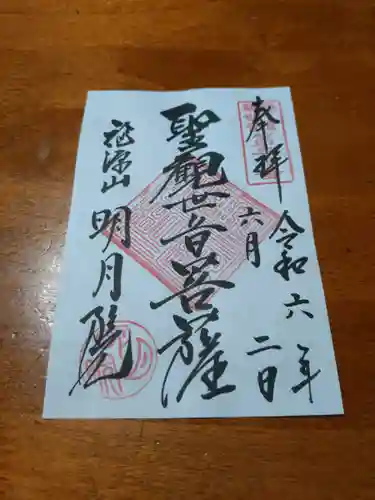 奉拝
令和六年
六月二日
聖観世音菩薩
龍源山
明月院